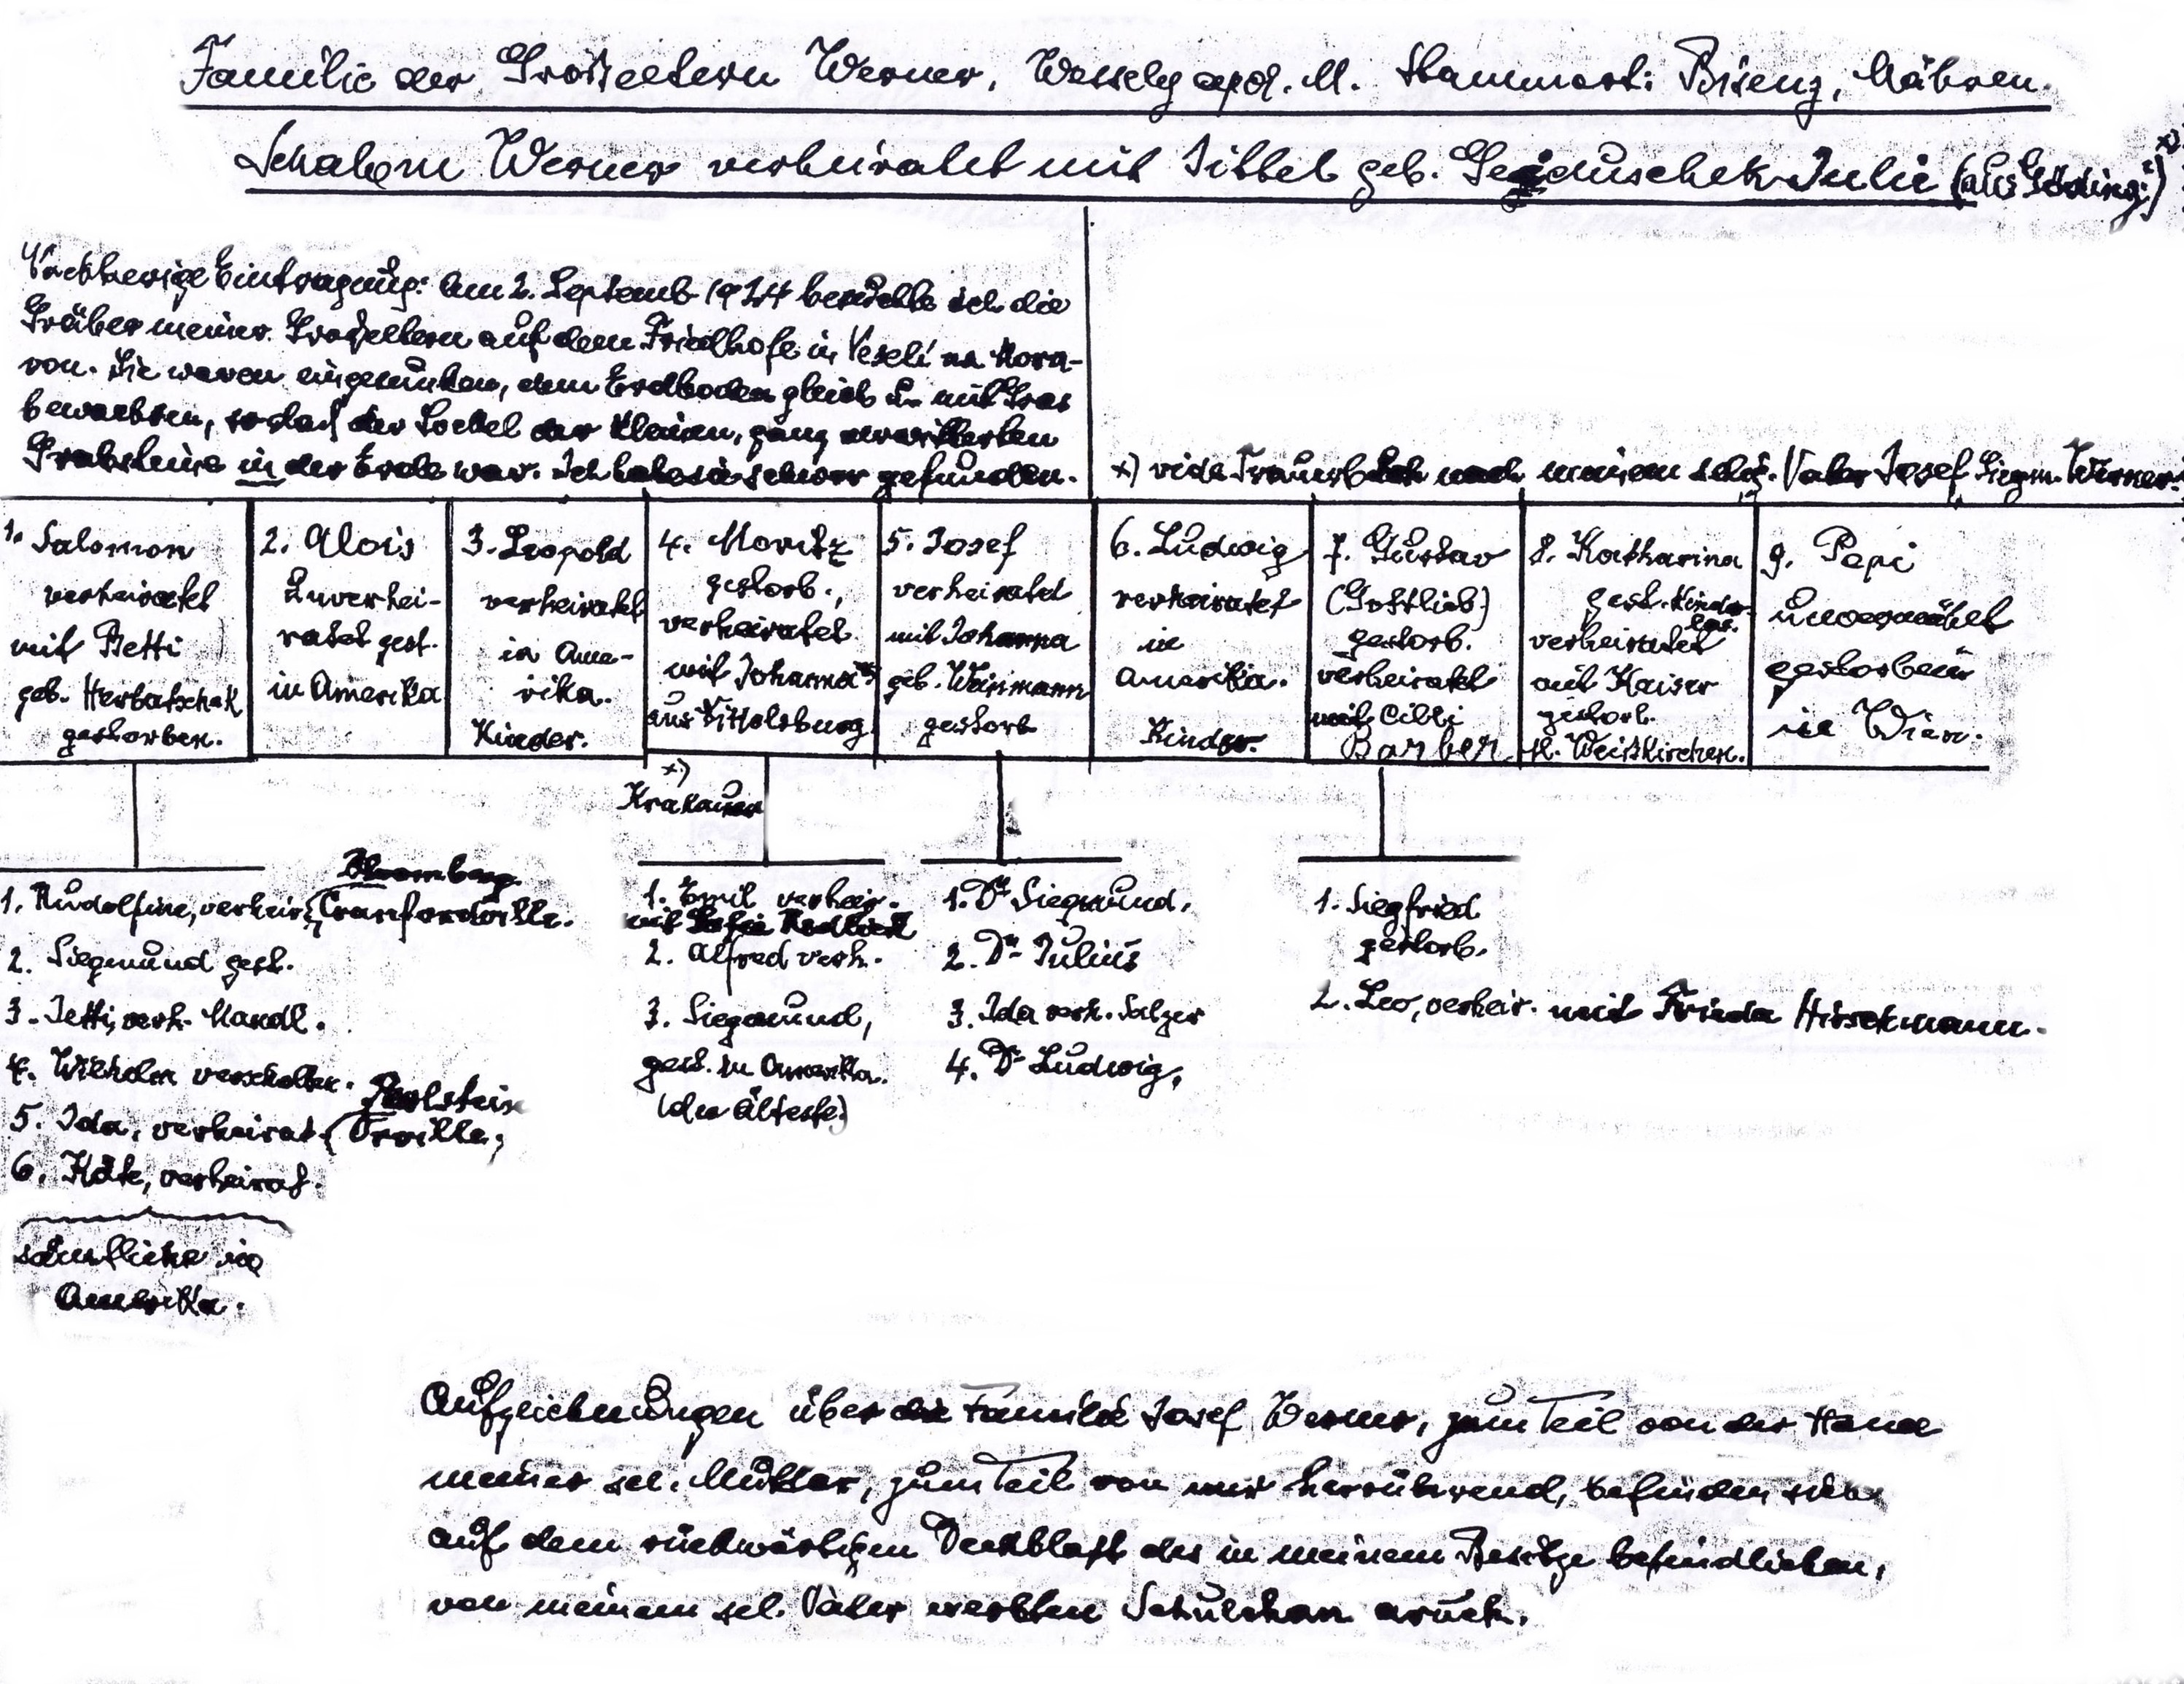 Familie der Grosseltern Werner, Wessely a/d. M. Stammort: Bisenz, Mähren.
Schalom Werner verheiratet mit Sittel geb. Julie (aus Göding) x)
Nachherige Eintragung: Am 2. Septemb 1924 besuchte ich die
Gräber meiner Großeltern auf dem Friedhofe in Veselí na Mora-
von. Sie waren eingesunken, dem Erdboden gleich u. mit Gras
bewachsen, sodaß der Sockel der kleinen, ganz verwitterten
Grabsteine in der Erde war. Ich habe sie schwer gefunden.
x) vide nach meinem selig. Vater Josef Siegm. Werner.
1. Salomon
verheiratet
mit Betti
geb. Herbatschek
gestorben.
2. Alois
Unverhei-
ratet gest.
in Amerika
3. Leopold
verheiratet
in Ame-
rika.
Kinder.
4. Moritz
gestorb.,
verheiratet
mit Johanna x)
aus
x)
Krakauer
5. Josef
verheiratet
mit Johanna
geb. Weinmann
gestorb
6. Ludwig
verheiratet
in
Amerika.
Kinder.
7. Gustav
(Gottlieb)
gestorb.
verheiratet
mit Cilli
Barber
8. Katharina
gest. Kinder-
los.
verheiratet
mit Kaiser
gestorb.
M. Weißkirchen.
9. Pepi
unvermählt
gestorben
in Wien.
1. Rudolfine, verheir. Crawfordville.
2. Siegmund gest.
3. Jetti, verh. Mandl.
4. Wilhelm verschollen.
Perlstein
5. Ida, verheirat. (Orville,
6. Käte, verheirat.
sämtliche in
Amerika.
1. Emil verheir.
mit Sofie Redlich
2. Alfred verh.
3. Siegmund,
gest. in Amerika.
(der älteste)
1. Dr Siegmund,
2. Dr Julius
3. Ida verh. Salzer
4. Dr Ludwig,
1. Siegfried
gestorb.
2. Leo, verheir. mit Frieda Hirschmann.
Aufzeichnungen über die Familie Josef Werner, zum Teil von der Hand
meiner sel. Mutter, zum Teil von mir herrührend, befinden sich
auf dem rückwärtigen Deckblatt des in meinem Besitze befindlichen,
von meinem sel. Vater ererbten Schulchan aruch.